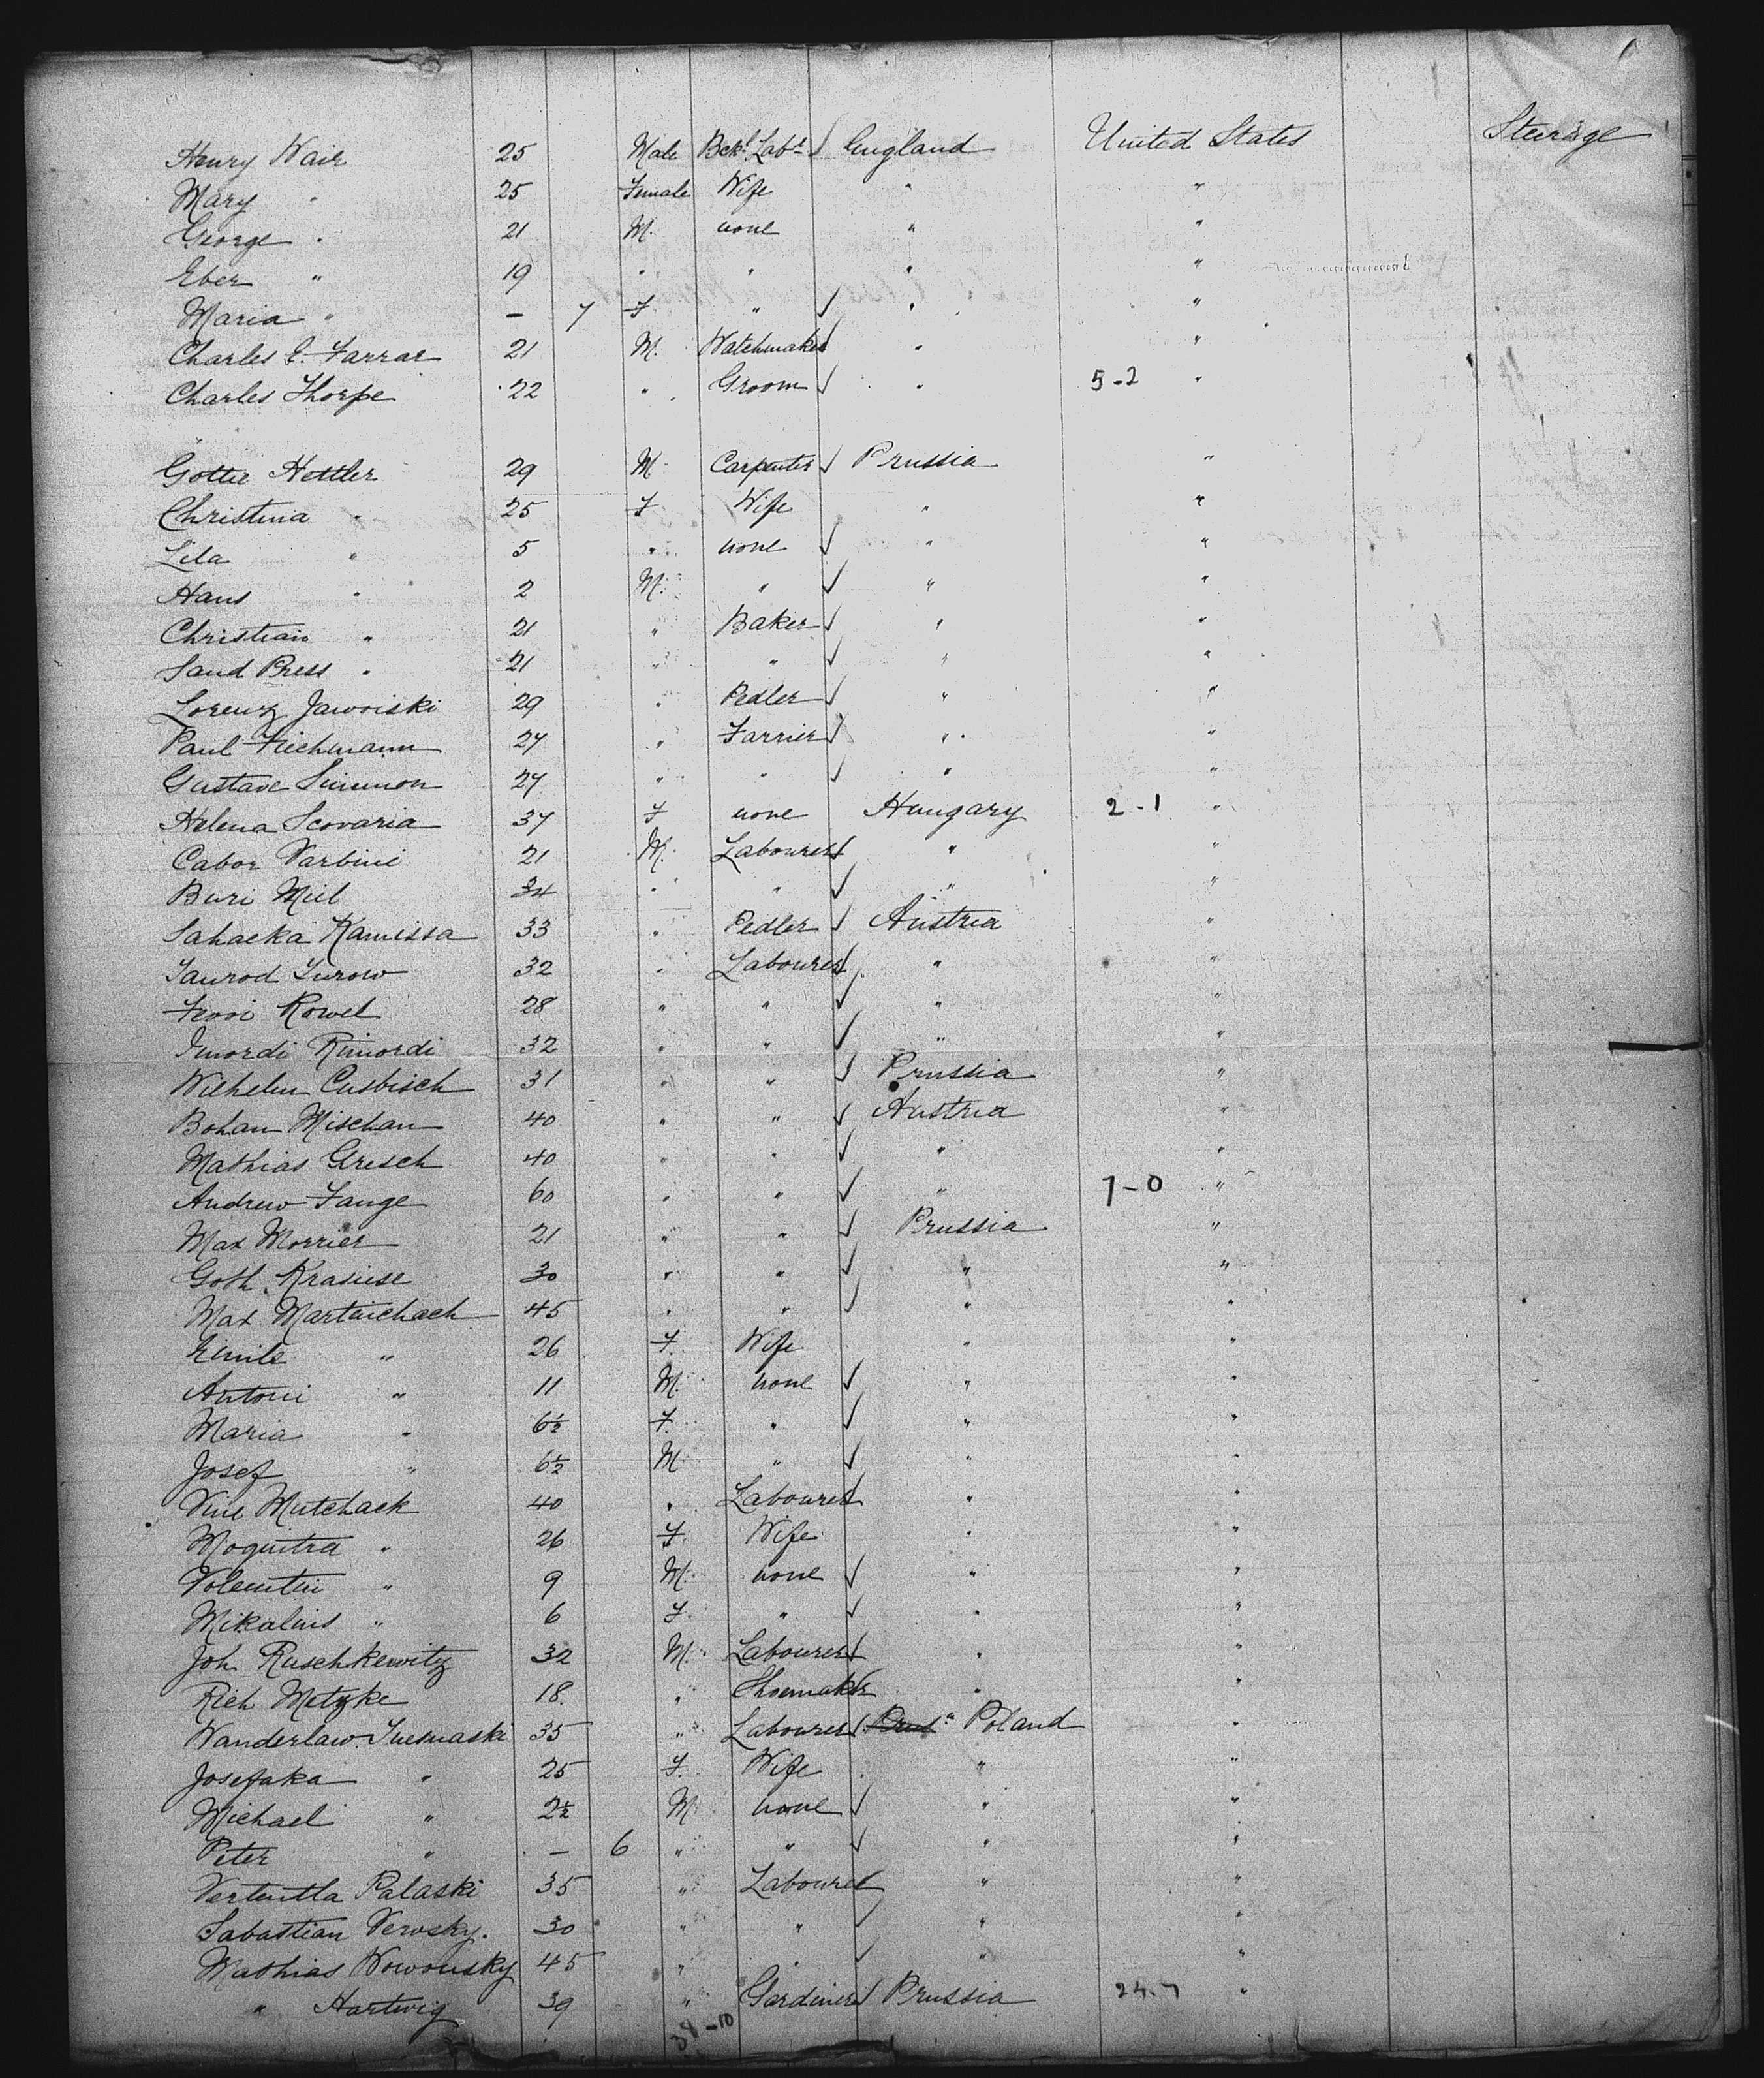 Henry Wair 25 Male Bckr Labr ✓ England United States Steerage
Mary " 25 Female Wife " "
George " 21 M. none " "
Eber " 19 " " " "
Maria " — 7 F " ✓ " "
Charles E. Farrar 21 M. Watchmaker ✓ " "
Charles Thorpe 22 " Groom ✓ " 5-2 "
Gottie Hettler 29 M. Carpenter ✓ Prussia "
Christina " 25 F Wife " "
Lila " 5 " none ✓ " "
Hans " 2 M. " ✓ " "
Christian " 21 " Baker ✓ " "
Sand Press " 21 " " ✓ " "
Lorenz Jawoiski 29 " Pedler ✓ " "
Paul Fiechmann 27 " Farrier ✓ " "
Gustave Simmon 27 " " ✓ " "
Helena Scovaria 37 F none Hungary 2-1 "
Cabor Varbini 21 M. Labourer ✓ " "
Buri Miel 34 " " ✓ " "
Sahacka Kamissa 33 " Pedler ✓ Austria "
Saurod Zurow 32 " Labourer ✓ " "
Feooi Rowel 28 " " ✓ " "
Imordi Rimordi 32 " " ✓ " "
Wilhelm Cusbisch 31 " " ✓ Prussia "
Bohan Mischan 40 " " ✓ Austria "
Mathias Gresch 40 " " ✓ " "
Andrew Fange 60 " " ✓ " 7-0 "
Max Morrier 21 " " ✓ Prussia "
Goth. Krasuse 30 " " ✓ " "
Max Martuichach 45 " " ✓ " "
Emile " 26 F. Wife " "
Antoni " 11 M. none ✓ " "
Maria " 6½ F. " ✓ " "
Josef " 6½ M " ✓ " "
Vine Mutchack 40 " Labourer ✓ " "
Moquitra " 26 F. Wife " "
Volentin " 9 M. none ✓ " "
Mikalius " 6 F. " ✓ " "
Joh Ruschkewitz 32 M. Labourer ✓ " "
Rich Metzke 18. " Shoemaker ✓ " "
Wanderlaw Suesmaski 35 " Labourer ✓ Prus" Poland "
Josefaka " 25 F. Wife " "
Michael " 2½ M. none ✓ " "
Peter " — 6 " " ✓ " "
Vertentla Palaski 35 " Labourer ✓ " "
Sabastian Verosky. 30 " " ✓ " "
Mathias Wowousky 45 " " ✓ " "
" Hartwig 39 " Gardiner ✓ Prussia 24-7 "
38-10